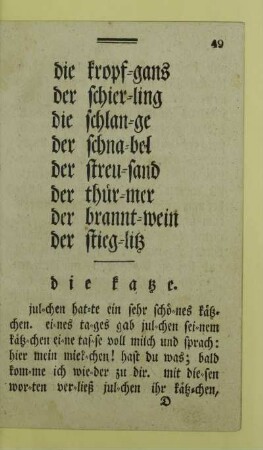 49
die kropf-gans
der schier-ling
die schlan-ge
der schna-bel
der streu-sand
der thür-mer
der brannt-wein
der stieg-litz
die katze.
jul-chen hat-te ein sehr schö-nes kätz-
chen. ei-nes ta-ges gab jul-chen sei-nem
kätz-chen ei-ne tas-se voll milch und sprach:
hier mein miek-chen! hast du was; bald
kom-me ich wie-der zu dir. mit die-sen
wor-ten ver-ließ jul-chen ihr kätz-chen,
D